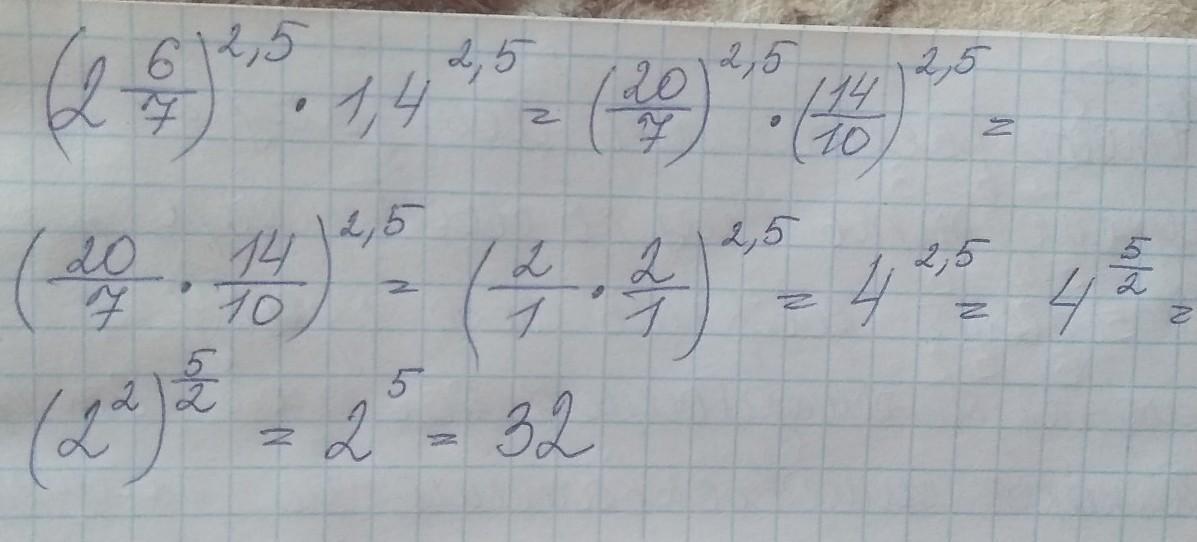 (2 6/7)^2,5 · 1,4^2,5 = (20/7)^2,5 · (14/10)^2,5 =
(20/7 · 14/10)^2,5 = (2/1 · 2/1)^2,5 = 4^2,5 = 4^5/2 =
(2^2)^5/2 = 2^5 = 32